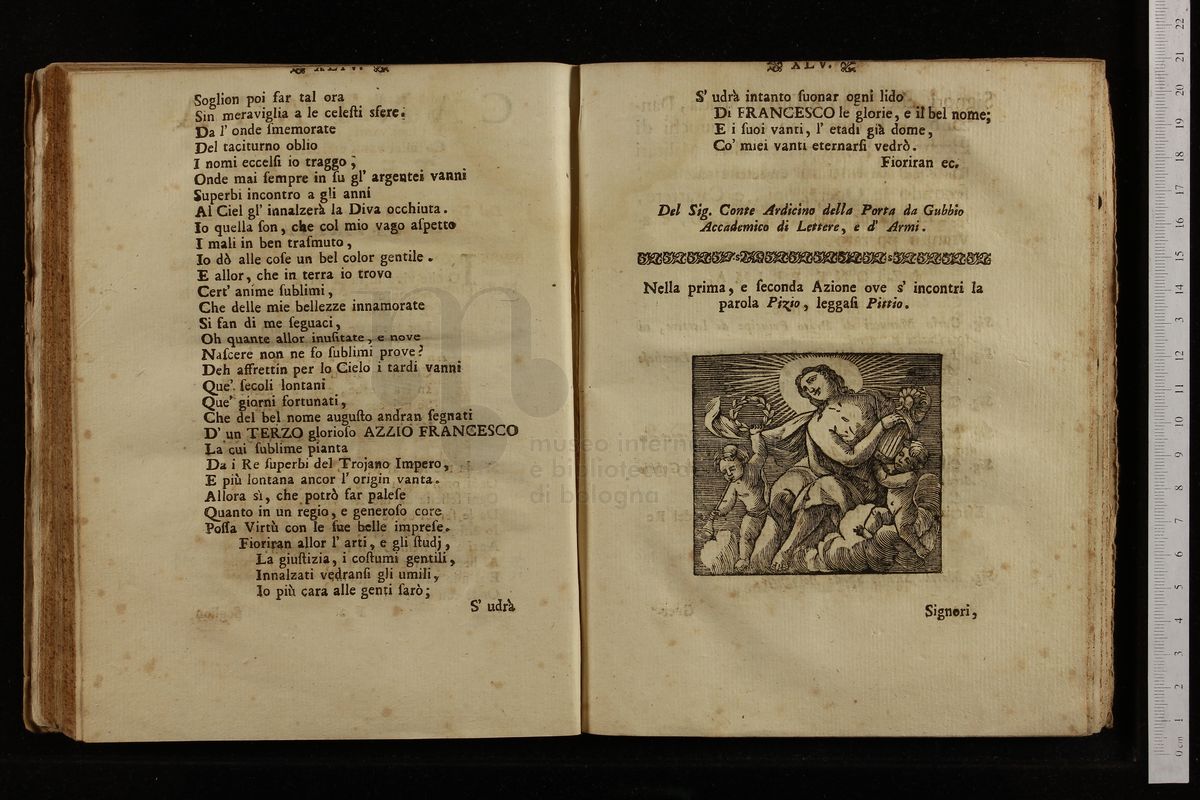 XLIV.
Soglion poi far tal ora
Sin meraviglia a le celeſti sfere.
Da l' onde ſmemorate
Del taciturno oblio
I nomi eccelſi io traggo;
Onde mai ſempre in ſu gl' argentei vanni
Superbi incontro a gli anni
Al Ciel gl' innalzerà la Diva occhiuta.
Io quella ſon, che col mio vago aſpetto
I mali in ben traſmuto,
Io dò alle coſe un bel color gentile.
E allor, che in terra io trovo
Cert' anime ſublimi,
Che delle mie bellezze innamorate
Si fan di me ſeguaci,
Oh quante allor inuſitate, e nove
Naſcere non ne fo ſublimi prove?
Deh affrettin per lo Cielo i tardi vanni
Que' ſecoli lontani
Que' giorni fortunati,
Che del bel nome auguſto andran ſegnati
D' un TERZO glorioſo AZZIO FRANCESCO
La cui ſublime pianta
Da i Re ſuperbi del Trojano Impero,
E più lontana ancor l' origin vanta.
Allora sì, che potrò far paleſe
Quanto in un regio, e generoſo core
Poſſa Virtù con le ſue belle impreſe.
Fioriran allor l' arti, e gli ſtudj,
La giuſtizia, i coſtumi gentili,
Innalzati vedranſi gli umili,
Io più cara alle genti ſarò;
S' udrà
XLV.
S' udrà intanto ſuonar ogni lido
Di FRANCESCO le glorie, e il bel nome;
E i ſuoi vanti, l' etadi già dome,
Co' miei vanti eternarſi vedrò.
Fioriran ec.
Del Sig. Conte Ardicino della Porta da Gubbio
Accademico di Lettere, e d' Armi.
Nella prima, e ſeconda Azione ove s' incontri la
parola Pizio, leggaſi Pittio.
Signori,
museo interna
e biblioteca d
di bologna
0 cm 1 2 3 4 5 6 7 8 9 10 11 12 13 14 15 16 17 18 19 20 21 22